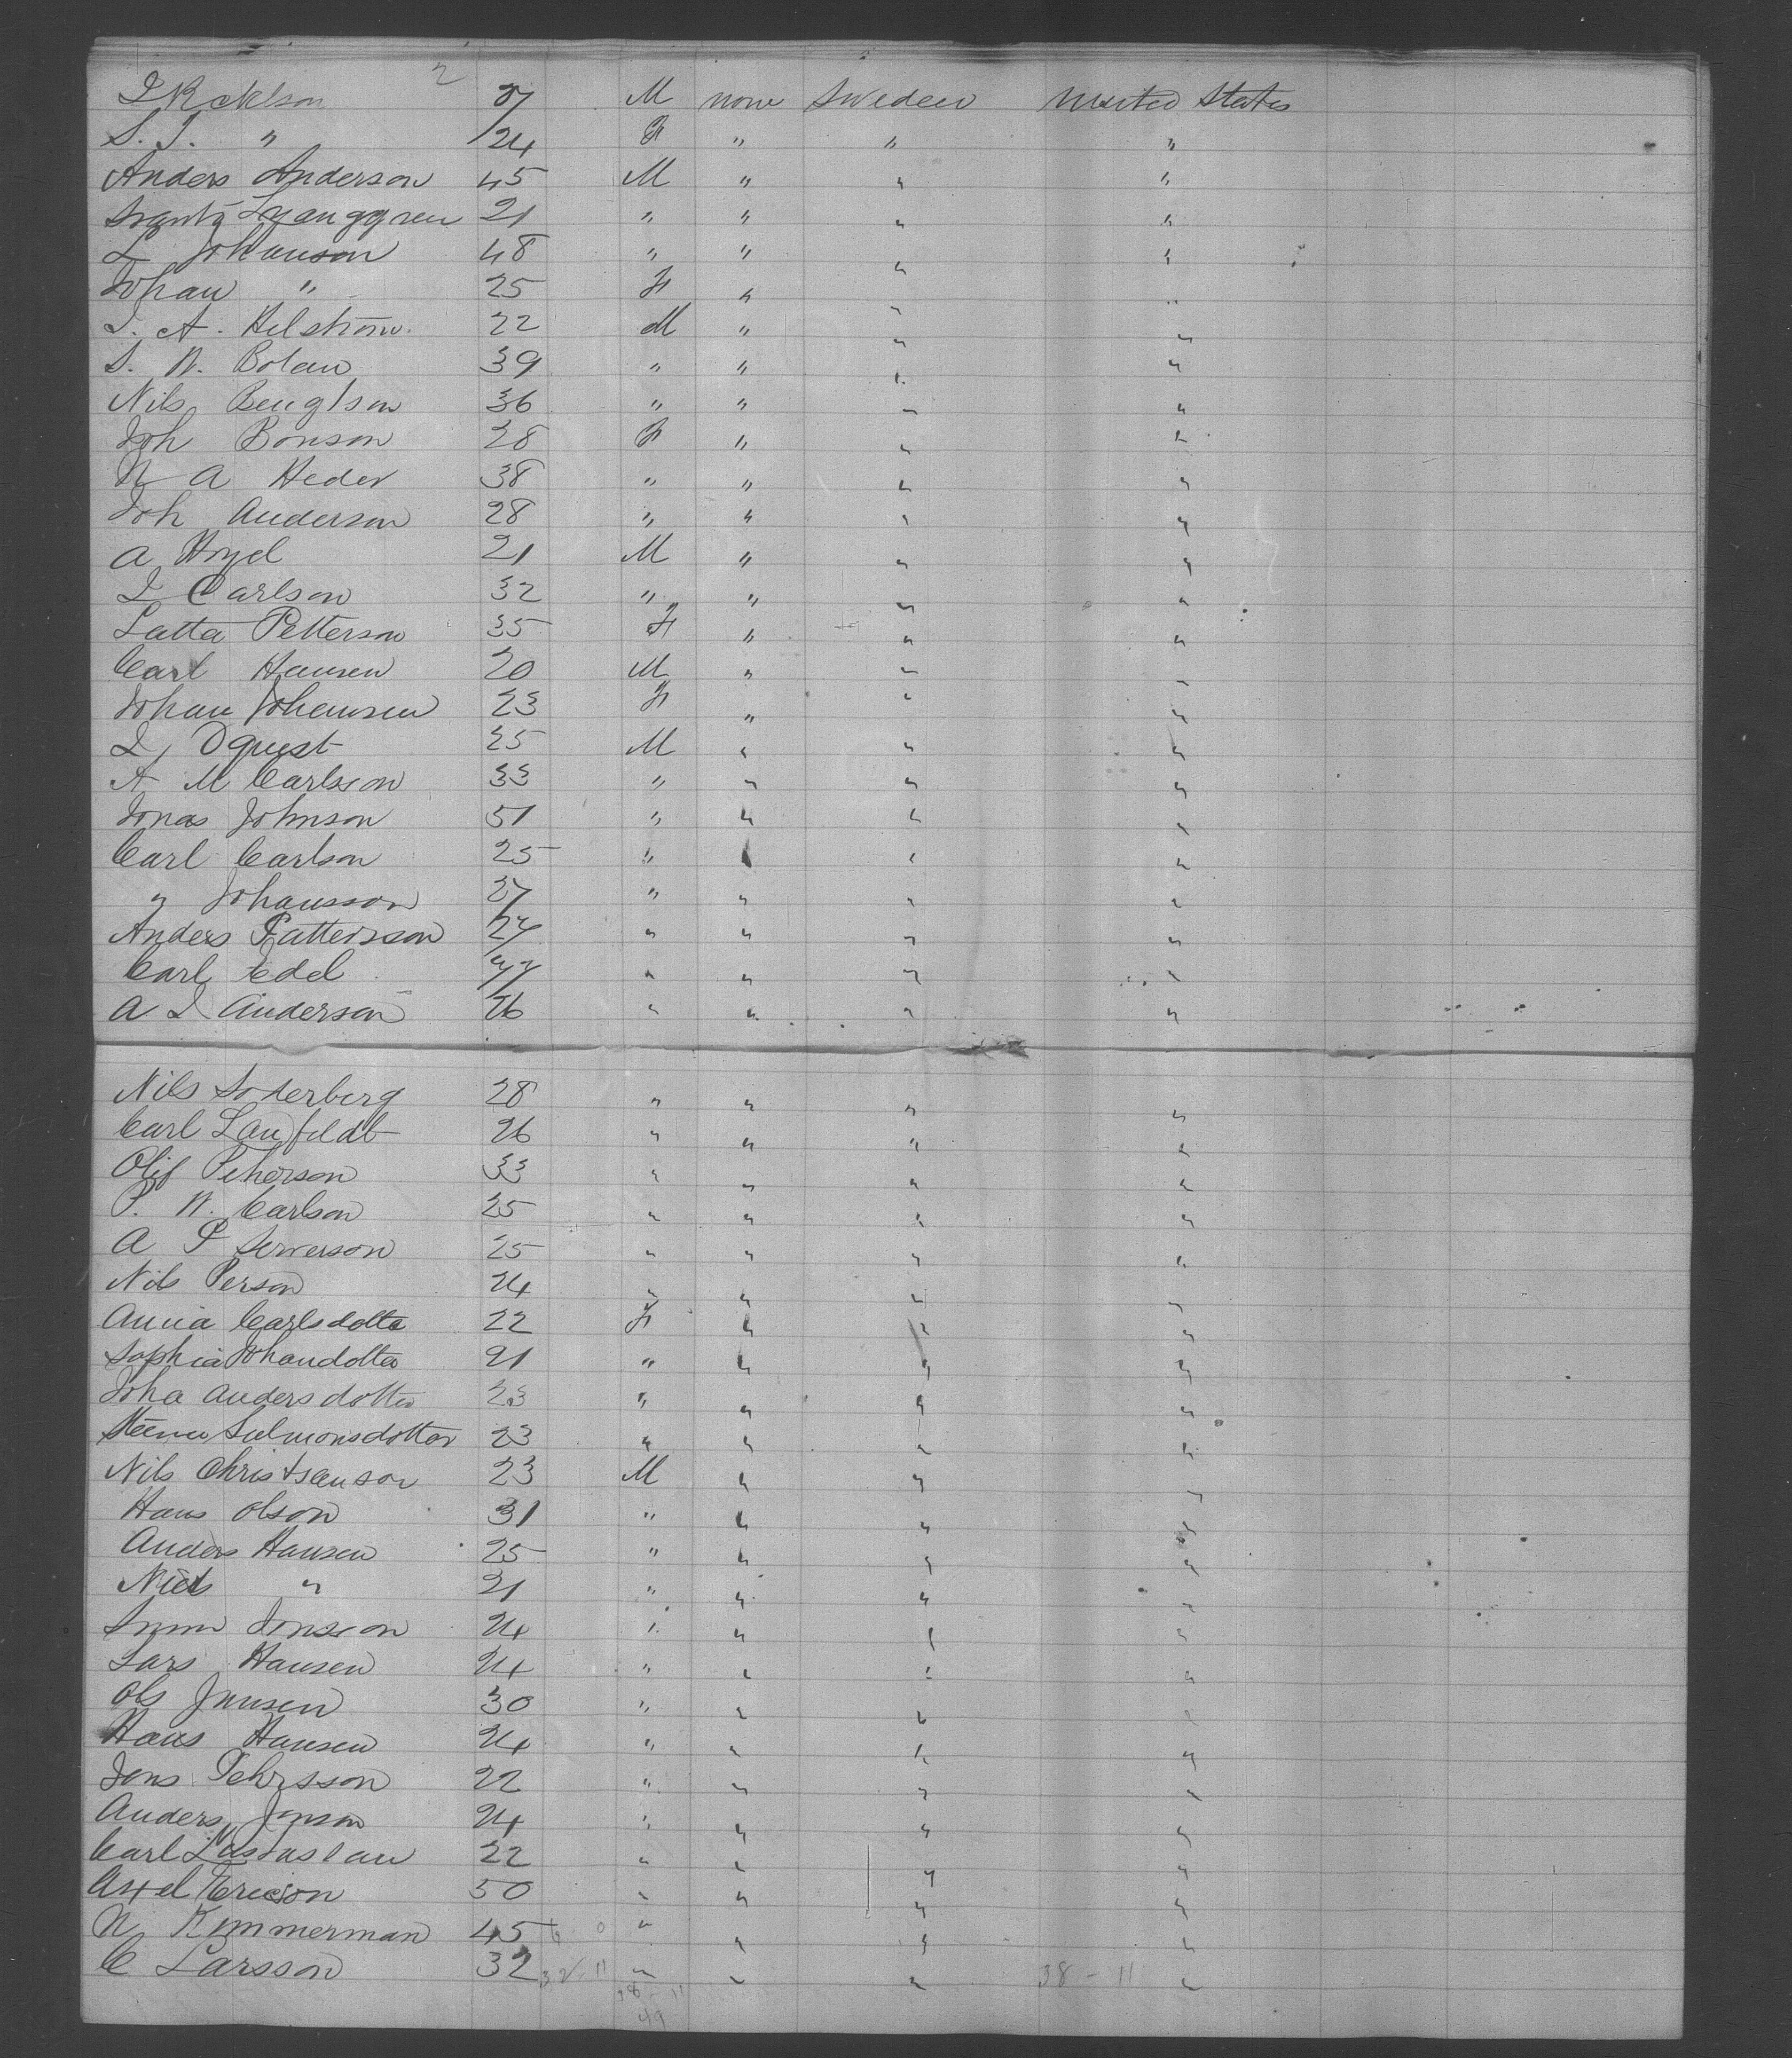 2
27 M none Sweden United States
S. J. " 24 F " " "
Anders Anderson 45 M " " "
Ljunggren 21 " " " "
L Johanson 48 " " " "
Johan " 25 F " " "
J. A. Helstrom 22 M " " "
S. N. Bolan 39 " " " "
Nils Bengtson 36 " " " "
Joh Bonson 28 F " " "
N A Heder 38 " " " "
Joh Anderson 28 " " " "
A 21 M " " "
Carlson 32 " " " "
Latta Petterson 35 F " " "
Carl Hansen 20 M " " "
Johan Johansen 23 F " " "
Oquist 25 M " " "
A M Carlsson 33 " " " "
Jonas Johnson 51 " " " "
Carl Carlson 25 " " " "
" Johansson 27 " " " "
Anders Patterson 27 " " " "
Carl Edel " " " "
A Anderson 26 " " " "
Nils Soderberg 28 " " " "
Carl Lanfeldt 26 " " " "
Olif Peterson 33 " " " "
P. N. Carlson 25 " " " "
A P 25 " " " "
Nils Person 24 " " " "
Anna Carlsdotta 22 F " " "
Sophia Johandotta 21 " " " "
Joha Andersdotter 23 " " " "
Salmonsdotter 23 " " " "
Nils Christsanson 23 M " " "
Hans Olson 31 " " " "
Anders Hansen 25 " " " "
Niels " 21 " " " "
Jonsson 24 " " " "
Lars Hansen 24 " " " "
Ols Jansen 30 " " " "
Hans Hansen 24 " " " "
Jons Pehrsson 22 " " " "
Anders Jonson 24 " " " "
Carl 22 " " " "
Axel Ericson 50 " " " "
N. Kimmerman 45 6 0 " " " "
C Larsson 32 32 - 11 " " " 38 - 11 "
38 - 11
49